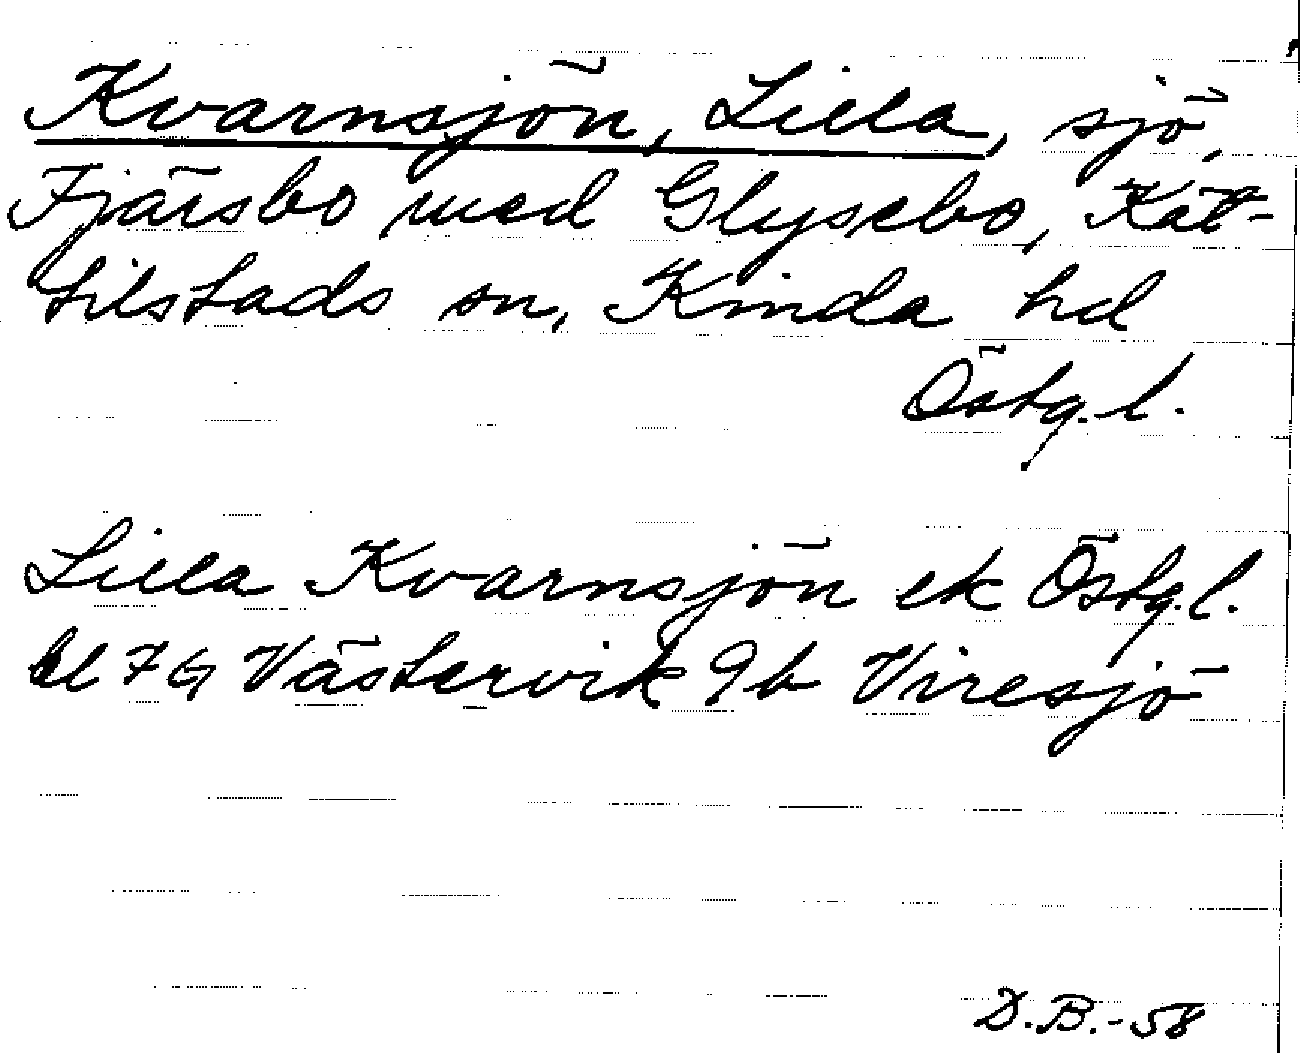 Kvarnsjön, Lilla, sjö,
Fjärsbo med Glysebo, Kät-
tilstads sn, Kinda hd
Östg. l.
Lilla Kvarnsjön ek Östg. l.
bl 7 G Västervik 9b Viresjö
D.B.-58